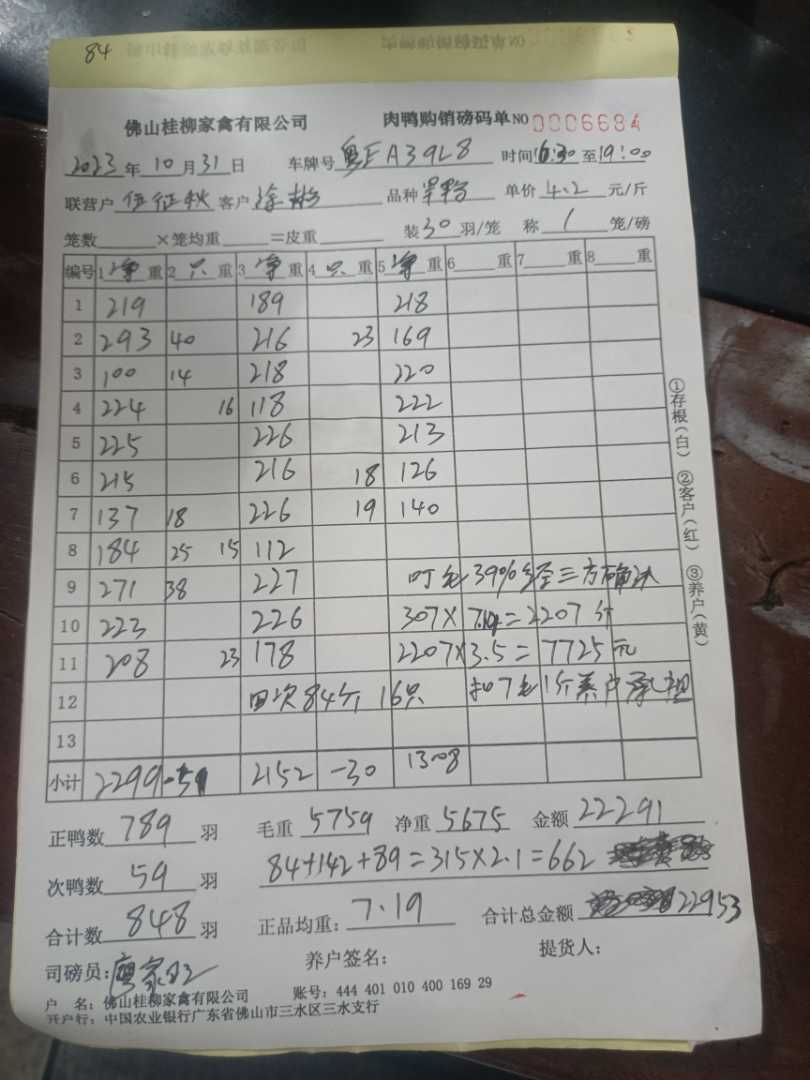 84
佛山桂柳家禽有限公司 肉鸭购销磅码单NO 0006684
2023年10月31日 车牌号 粤EA39L8 时间16:30至19:00
联营户 伍征秋 客户 徐彬 品种 单价 4.2 元/斤
笼数 ×笼均重 =皮重 装30羽/笼 称 1 笼/磅
编号 1 净重 2 只重 3 净重 4 只重 5 净重 6 重 7 重 8 重
1 219 189 218
2 293 40 216 23 169
3 100 14 218 220
4 224 16 118 222
5 225 226 213
6 215 216 18 126
7 137 18 226 19 140
8 184 25 15 112
9 271 38 227 叮毛39%经三方确认
10 223 226 307×7.19=2207斤
11 208 23 178 2207×3.5=7725元
12 回次84斤16只 扣7毛1斤养户承担
13
小计 2299 -51 2152 -30 1308
正鸭数 789 羽 毛重 5759 净重 5675 金额 22291
次鸭数 59 羽 84+142+89=315×2.1=662
合计数 848 羽 正品均重: 7.19 合计总金额 22953
司磅员: 养户签名: 提货人:
户 名: 佛山桂柳家禽有限公司 账号: 444 401 010 400 169 29
开户行: 中国农业银行广东省佛山市三水区三水支行
①存根(白) ②客户(红) ③养户(黄)